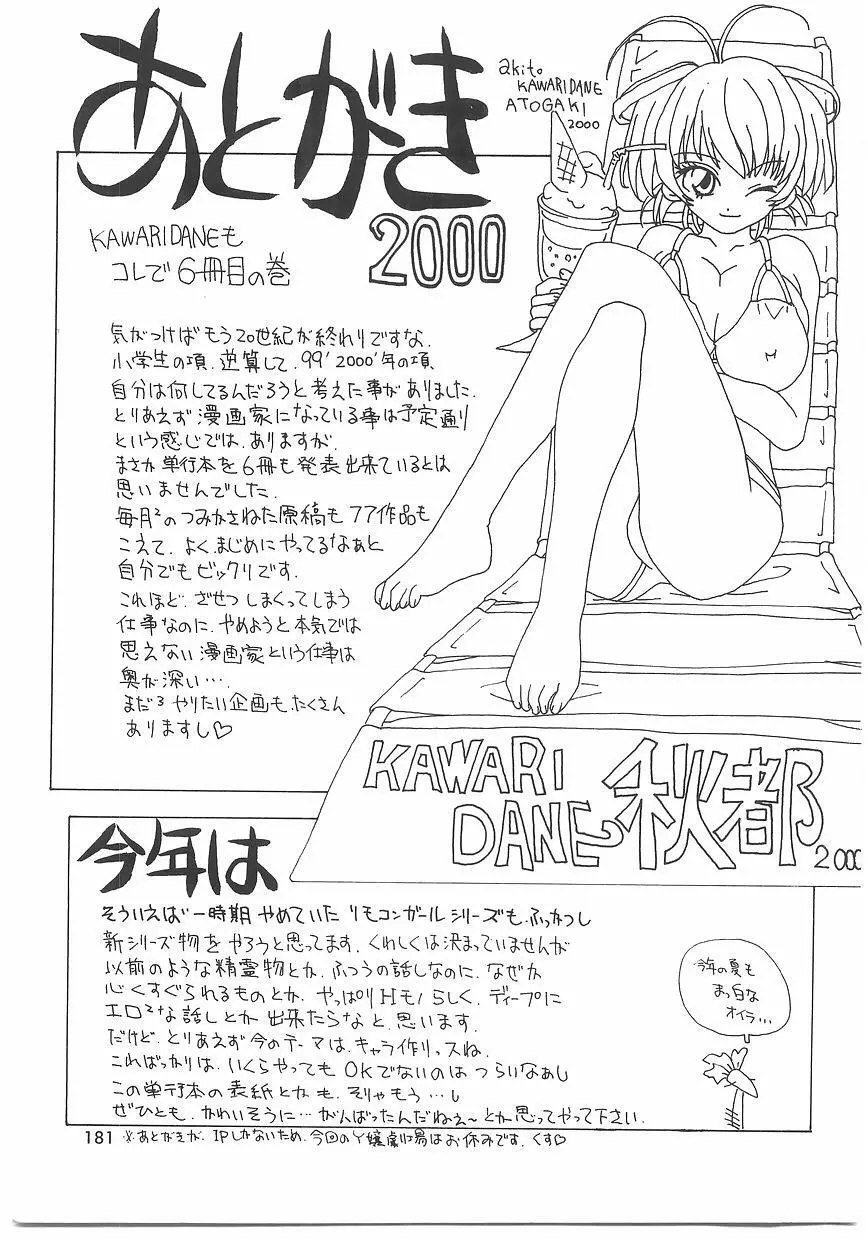 あとがき
2000
akito
KAWARIDANE
ATOGAKI
2000
KAWARIDANEも
コレで6冊目の巻
気がつけばもう20世紀が終わりですな.
小学生の項、逆算して、99'2000'年の項、
自分は何してるんだろうと考えた事がありました.
とりあえず漫画家になっている事は予定通り
という感じでは、ありますが、
まさか単行本を6冊も発表出来ているとは
思いませんでした.
毎月²のつみかさねた原稿も77作品も
こえて、よくまじめにやってるなぁと
自分でもビックリです.
これほど、ざせつしまくってしまう
仕事なのに、やめようと本気では
思えない漫画家という仕事は
奥が深い…
まだ3やりたい企画も、たくさん
ありますし♡
KAWARI
DANE 秋都
2000
今年は
そういえば一時期やめていたリモコンガールシリーズも、ふっかつし
新シリーズ物をやろうと思ってます. くわしくは決まっていませんが
以前のような精霊物とか、ふつうの話しなのに、なぜか
心くすぐられるものとか、やっぱりHモノらしく、ディープに
エロ²な話しとか出来たらなと、思います.
だけど、とりあえず今のテーマは、キャラ作りっスね.
こればっかりは、いくらやってもOKでないのはつらいなぁし
この単行本の表紙とかも、そりゃもう…し
ぜひとも、かわいそうに…がんばったんだねぇ~とか思ってやって下さい.
今年の夏も
まっ白な
オイラ…
181 ※あとがきが、1Pしかないため、今回のY嬢劇場はお休みです、くす♡